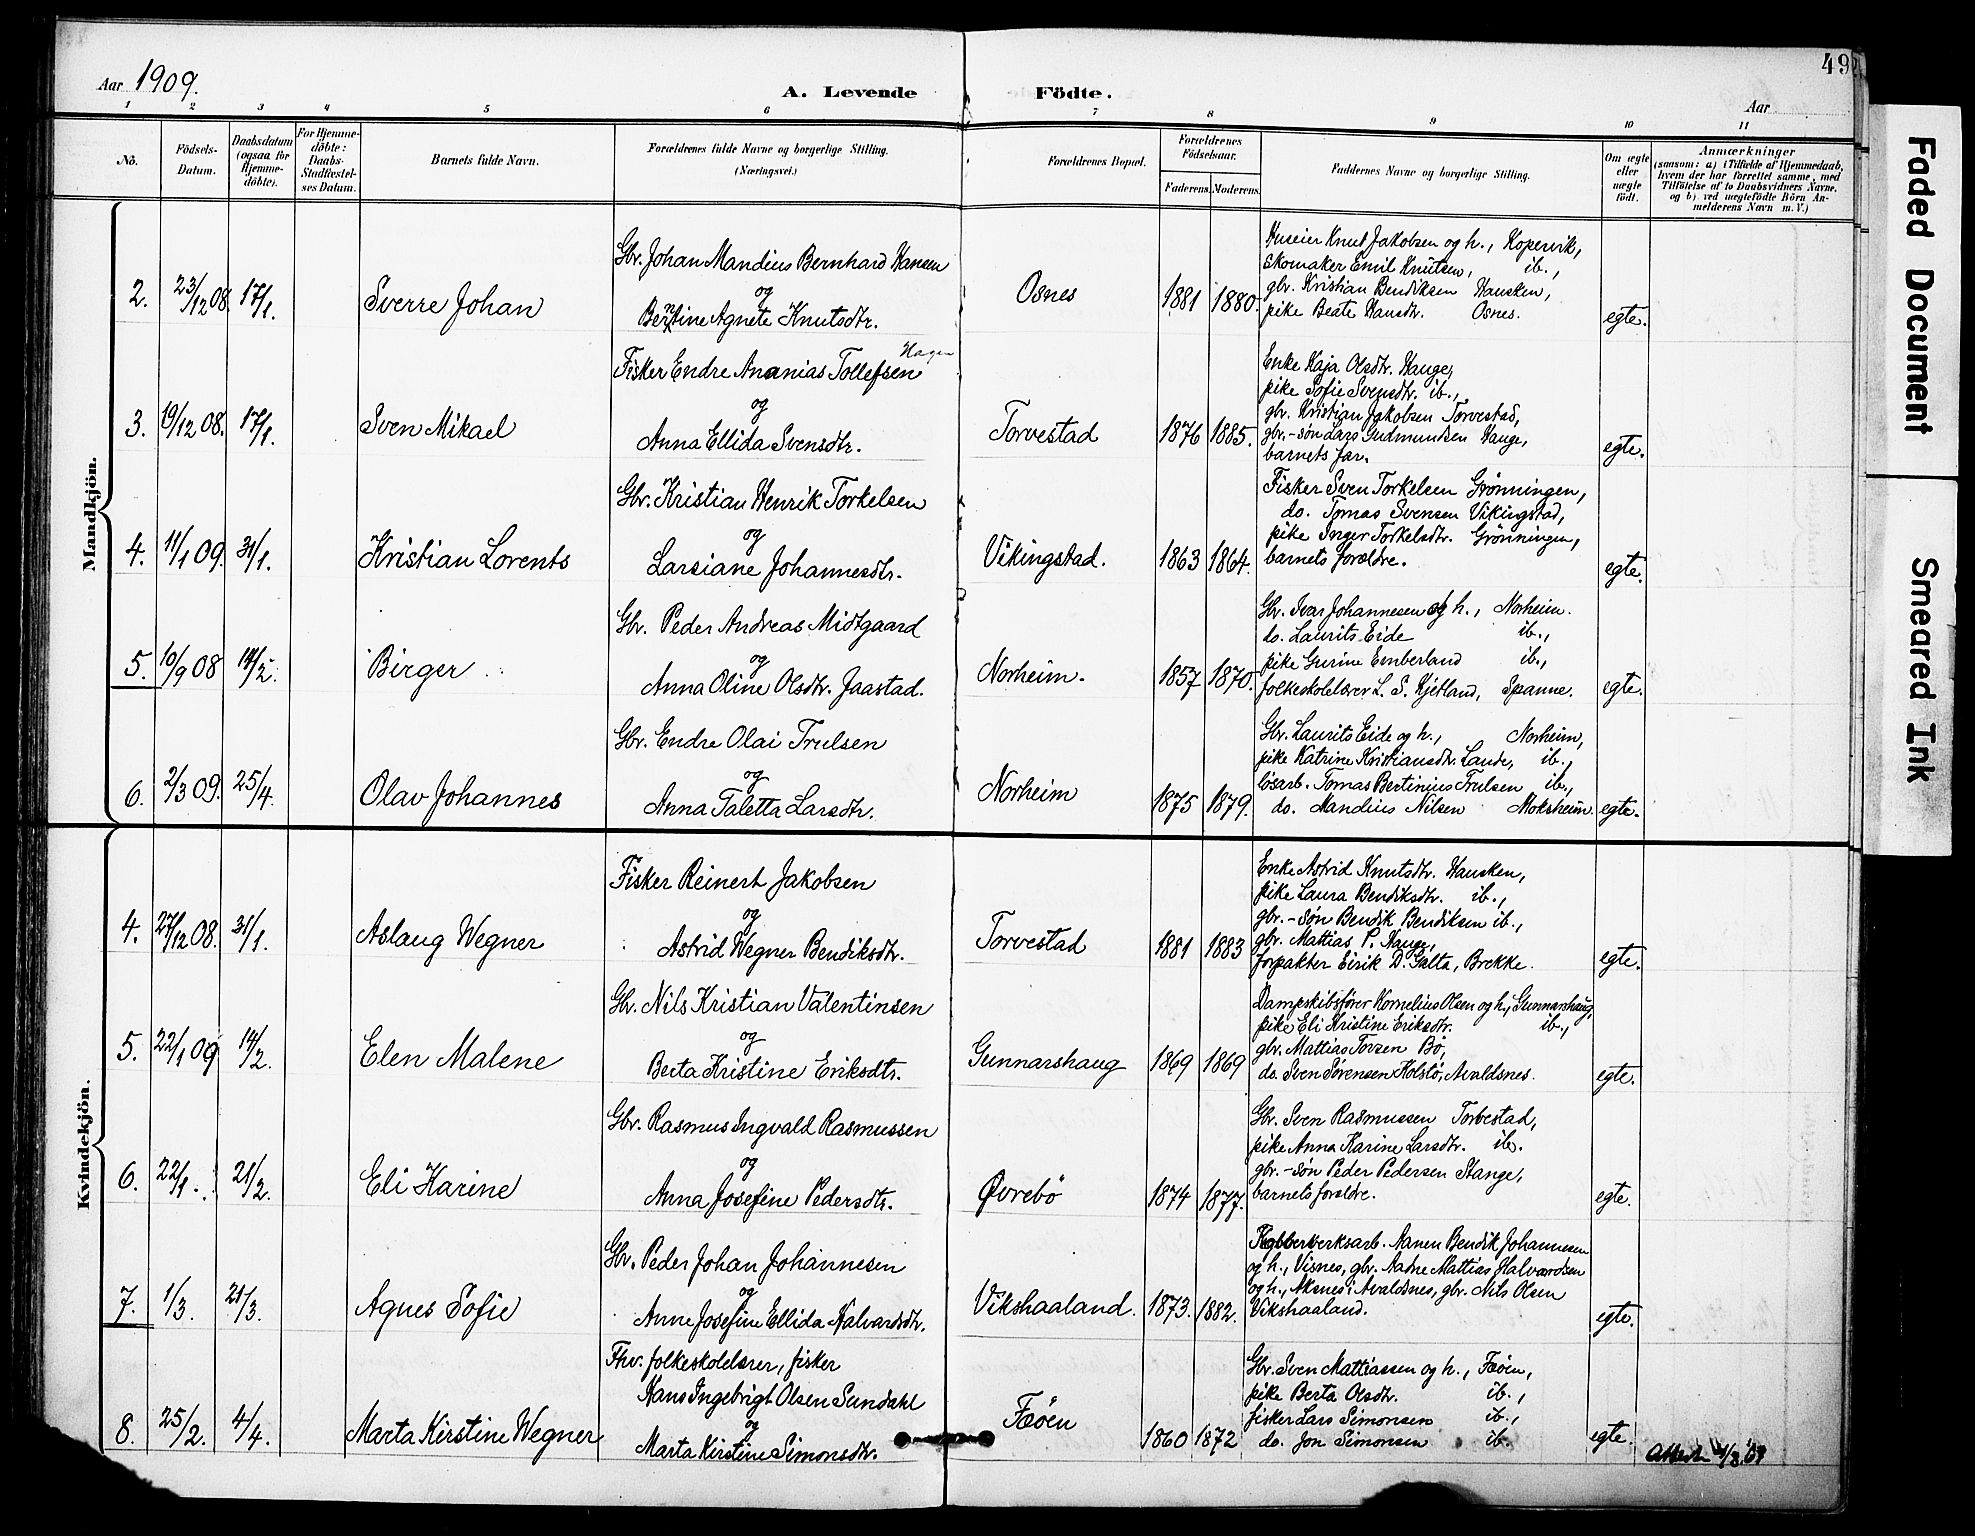 49
Aar 1909.
A. Levende Födte.
Aar
1 2 3 4 5 6 7 8 9 10 11
Nö.
Födsels-Datum.
Daabsdatum (ogsaa for Hjemme-döbte).
For Hjemme-döbte: Daabs-Stadfæstel-ses Datum.
Barnets fulde Navn.
Forældrenes fulde Navne og borgerlige Stilling. (Næringsvei.)
Forældrenes Bopæl.
Forældrenes Födselsaar.
Faderens. Moderens.
Faddernes Navne og borgerlige Stilling.
Om ægte eller uægte födt.
Anmærkninger
(saasom: a) i Tilfælde af Hjemmedaab, hvem der har forrettet samme, med Tilföielse af to Daabsvidners Navne, og b) ved uægtefödte Börn An-melderens Navn m. V.)
Mandkjön.
2. 23/12 08. 17/1. Sverre Johan
Gbr. Johan Mandius Bernhard Hansen
og
Berntine Agnete Knutsdtr.
Osnes 1881 1880.
Huseier Knut Jakobsen og h., Kopervik,
skomaker Emil Knutsen, ib.,
gbr. Kristian Bendiksen Hausken,
pike Beate Hansdtr. Osnes.
egte.
3. 19/12 08. 17/1. Sven Mikael
Hagen
Fisker Endre Ananias Tollefsen
og
Anna Ellida Svensdtr.
Torvestad 1876 1885.
Enke Kaja Olsdtr. Hauge,
pike Sofie Svensdtr. ib.,
gbr. Kristian Jakobsen Torvestad,
gbr.-søn Lars Gudmundsen Hauge,
barnets far.
egte.
4. 11/1 09. 31/1. Kristian Lorents
Gbr. Kristian Henrik Torkelsen
og
Larsiane Johannesdtr.
Vikingstad. 1863 1864.
Fisker Sven Torkelsen Grønningen,
do. Tomas Svensen Vikingstad,
pike Inger Torkelsdtr. Grønningen,
barnets forældre.
egte.
5. 10/9 08 14/2. Birger
Gbr. Peder Andreas Midtgaard
og
Anna Oline Olsdtr. Jaastad.
Norheim. 1857 1870.
Gbr. Ivar Johannesen og h., Norheim.
do. Laurits Eide ib.,
pike Gurine Emberland ib.,
folkeskolelærer L. S. Kjetland, Spanne.
egte.
6. 2/3 09. 25/4. Olav Johannes
Gbr. Endre Olai Trulsen
og
Anna Taletta Larsdtr.
Norheim 1875 1879.
Gbr. Laurits Eide og h., Norheim,
pike Katrine Kristiansdtr. Lande, ib.,
løsarb. Tomas Bertinius Trulsen ib.,
do. Mandius Nilsen Moksheim.
egte.
Kvindekjön.
4. 27/12 08. 31/1. Aslaug Wegner
Fisker Reinert Jakobsen
og
Astrid Wegner Bendiksdtr.
Torvestad 1881 1883
Enke Astrid Knutsdtr. Hausken,
pike Laura Bendiksdtr. ib.,
gbr.-søn Bendik Bendiksen ib.,
gbr. Mattias P. Hauge,
forpakter Eirik D. Galta, Brekke.
egte.
5. 22/1 09 14/2. Elen Malene
Gbr. Nils Kristian Valentinsen
og
Berta Kristine Eriksdtr.
Gunnarshaug 1869 1869
Dampskibsfører Kornelius Olsen og h., Gunnarshaug,
pike Eli Kristine Eriksdtr. ib.,
gbr. Mattias Torsen Bö,
do. Sven Sørensen Kolstø, Avaldsnes.
egte.
6. 22/1. 21/2. Eli Karine
Gbr. Rasmus Ingvald Rasmussen
og
Anna Josefine Pedersdtr.
Øvrebö 1874 1877.
Gbr. Sven Rasmussen Torvestad,
pike Anna Karine Larsdtr. ib.
gbr.-søn Peder Pedersen Stange,
barnets forældre.
egte.
7. 1/3. 21/3. Agnes Sofie
Gbr. Peder Johan Johannesen
og
Anne Josefine Ellida Halvardsdtr.
Vikshaaland. 1873. 1882.
Kobberverksarb. Aanen Bendik Johannesen
og h., Visnes, gbr. Aadne Mattias Halvardsen
og h., Aksnes i Avaldsnes, gbr. Nils Olsen
Vikshaaland.
egte.
8. 25/2. 4/4. Marta Kirstine Wegner
Fhv. folkeskolelærer, fisker
Hans Ingebrigt Olsen Sundahl
og
Marta Kirstine Simonsdtr.
Fæöen 1860 1872
Gbr. Sven Mattiassen og h., Fæöen,
pike Berta Olsdtr. ib.,
fisker Lars Simonsen ib.,
do. Jon Simonsen ib.
egte.
Faded Document
Smeared Ink